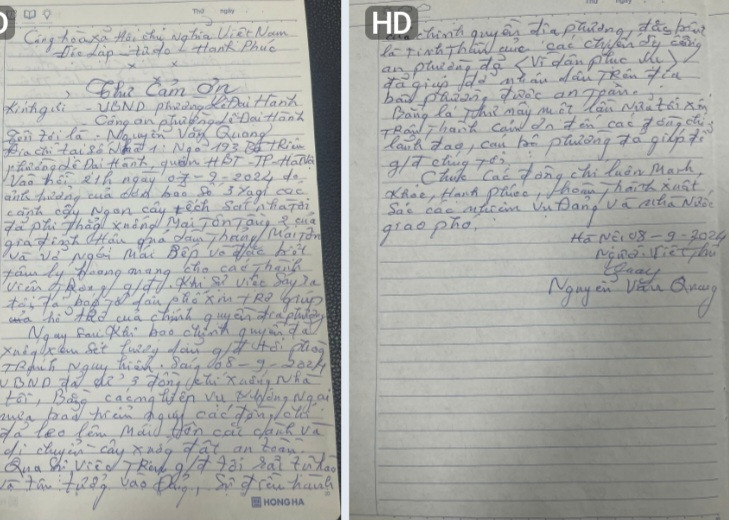 Thứ ngày
HD
Cộng hòa xã Hội chủ Nghĩa Việt Nam
Độc Lập - tự do - Hạnh Phúc
Thư Cảm Ơn
Kính gửi - UBND phường Lê Đại Hành
Công an phường Lê Đại Hành
Tên tôi là - Nguyễn Văn Quang
Địa chỉ tại số Nhà 1: Ngõ 193 Bà Triệu
phường Lê Đại Hành, quận HBT - TP - Hà Nội
Vào hồi 21h ngày 07-9-2024 do
ảnh hưởng của cơn bão số 3 Yagi các
cành cây Ngọn cây sát nhà tôi
đã xuống Mái Tôn Tầng 2 của
gia đình Hậu quả làm Thủng Mái Tôn
và vỡ Ngói Mái Bếp và đặc biệt
tâm lý hoang mang cho các Thành
viên Trong g/đ. Khi sự việc xảy ra
tôi đã báo tổ dân phố xin Trợ giúp
của chính quyền địa phương
Ngay sau Khi báo chính quyền đã
xuống xem xét hướng dẫn g/đ phòng
Tránh Nguy hiểm. Sáng 08-9-2024
UBND đã cử 3 đồng chí xuống Nhà
tôi, Bằng các nghiệp vụ không Ngại
mưa bão hiểm nguy các đồng chí
đã leo lên Mái cắt cành và
di chuyển cây xuống đất an toàn.
Qua sự việc Trên g/đ tôi rất tự hào
và tin tưởng vào Đảng, sự điều hành
HONG HA
ngày
HD
chính quyền địa phương, đặc biệt
là tinh thần các chiến sỹ công
an phường đã <Vì dân phục vụ>
đã giúp đỡ nhân dân Trên địa
bàn phường được an toàn.
Bằng lá Thư này một lần Nữa tôi xin
Trân Thành cảm ơn đến các đồng chí
lãnh đạo, cán bộ phường đã giúp đỡ
g/đ chúng Tôi.
Chúc Các đồng chí luôn Mạnh
Khỏe, Hạnh phúc, hoàn Thành xuất
sắc các nhiệm vụ Đảng và Nhà Nước
giao phó.
Hà Nội 08-9-2024
Người viết Thư
Quang
Nguyễn Văn Quang